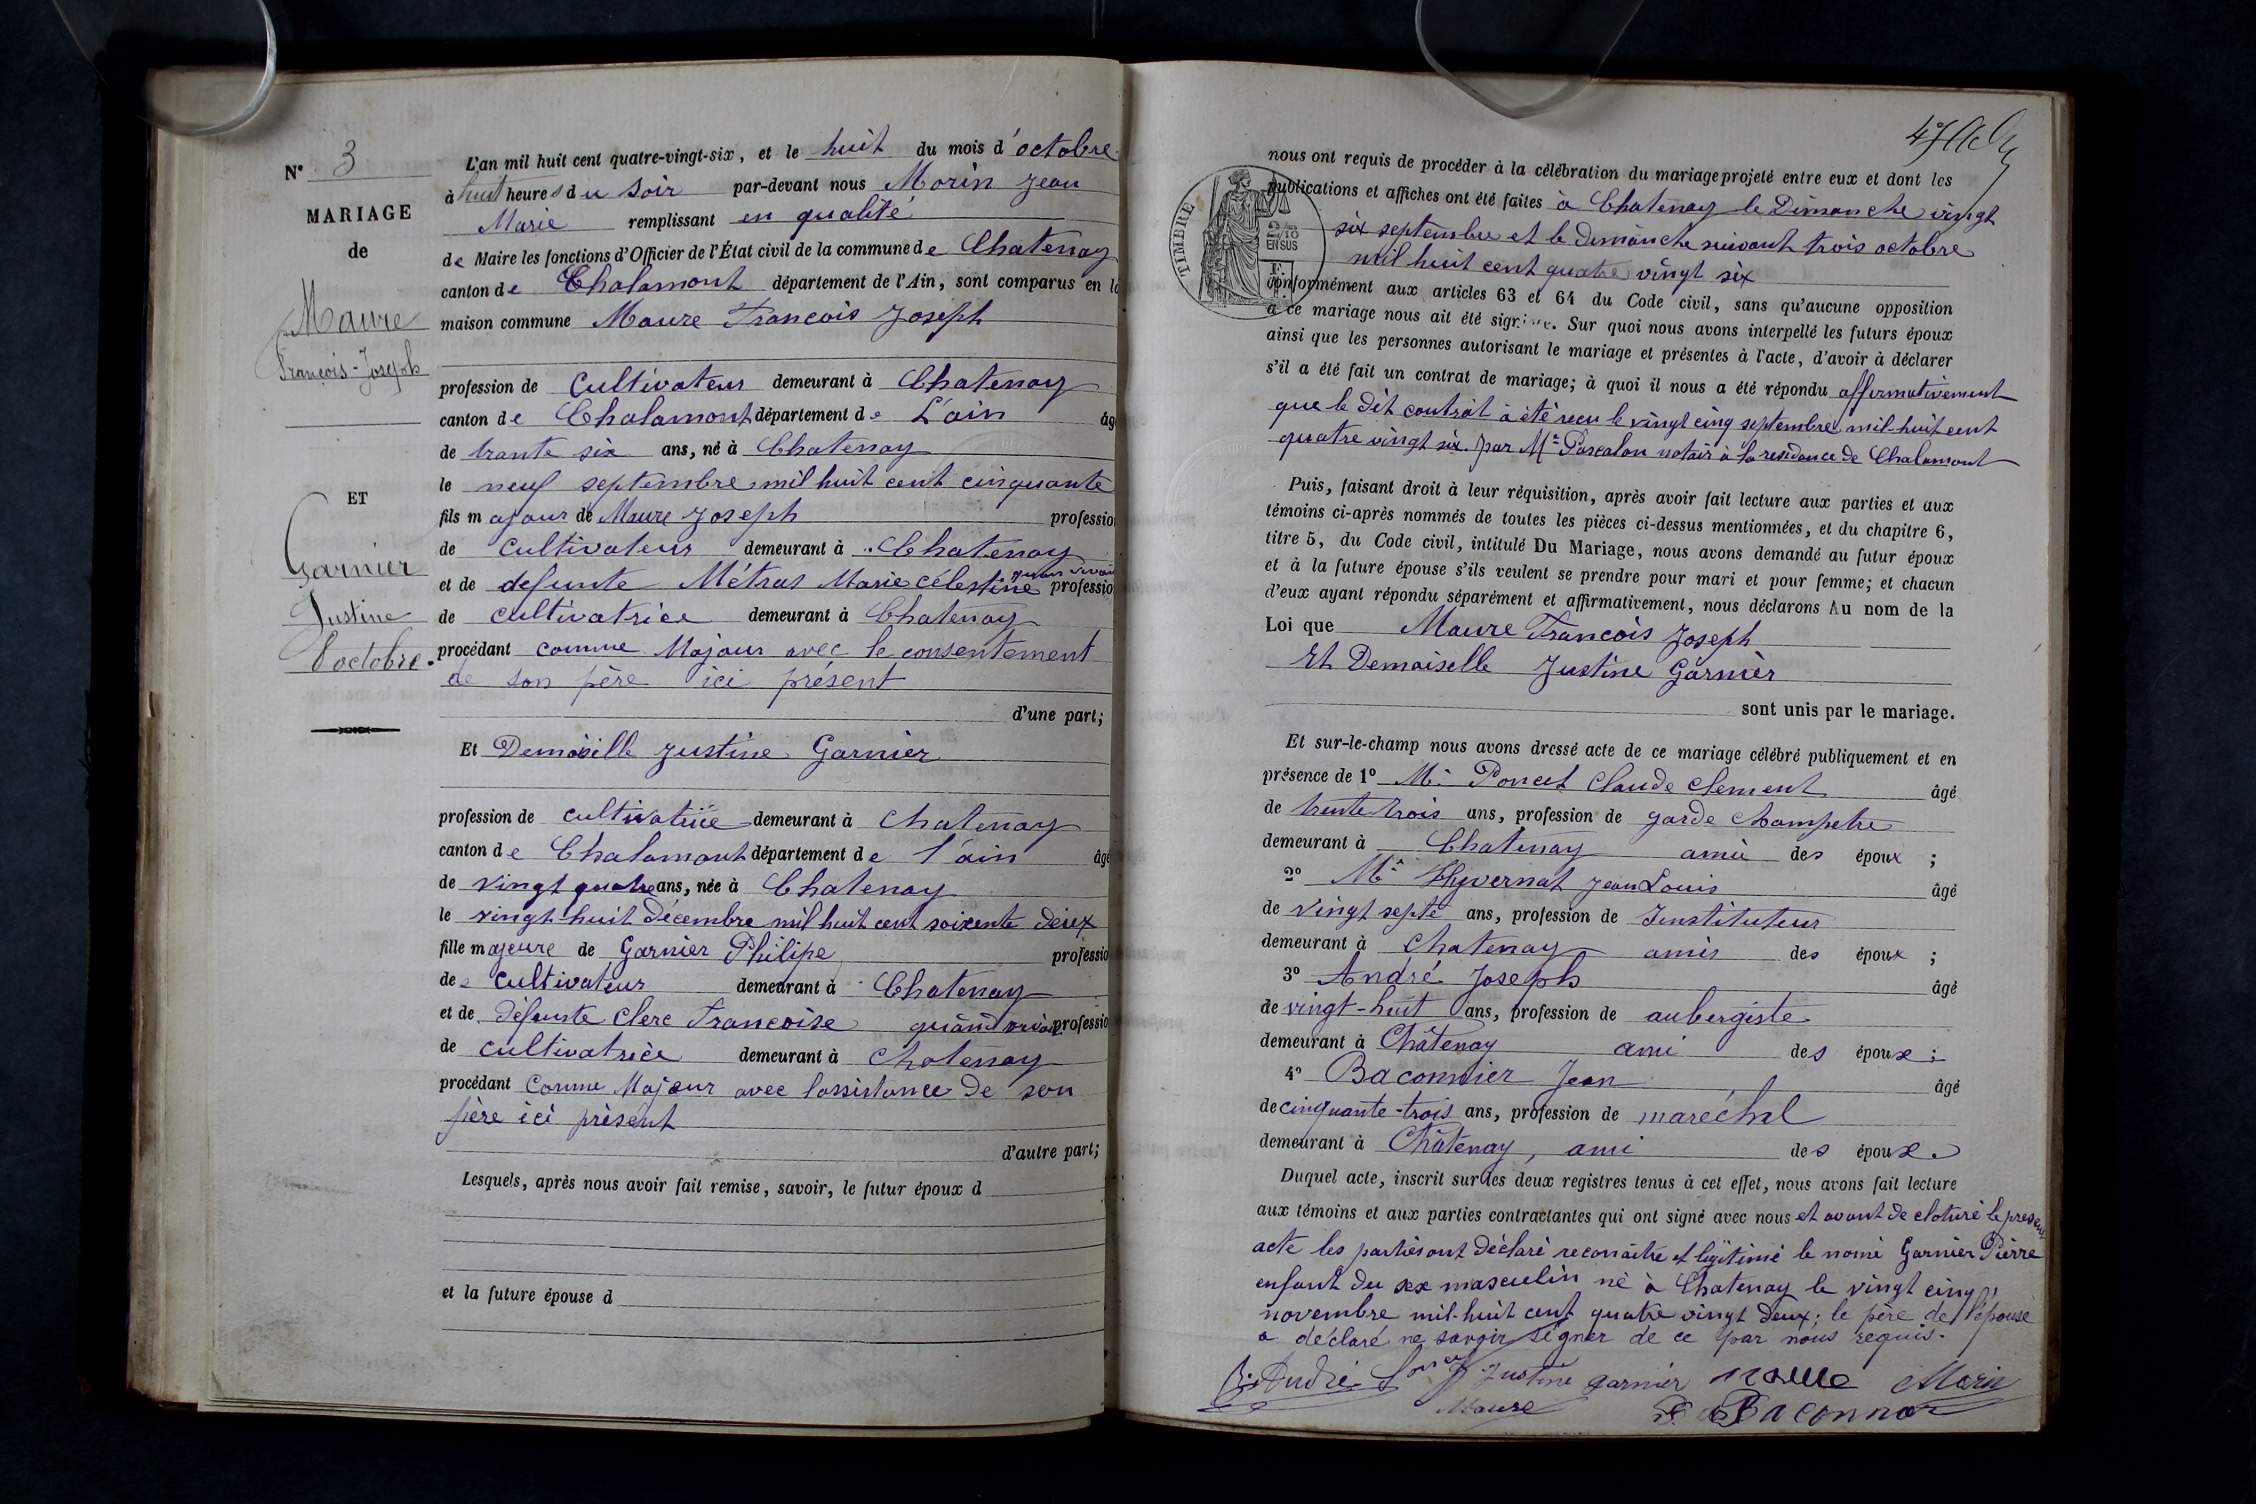 N° 3
MARIAGE
de
Maure
François-Joseph
ET
Garnier
Justine
8 octobre.
L'an mil huit cent quatre-vingt-six, et le huit du mois d'octobre
à huit heures du soir par-devant nous Morin Jean
Marie remplissant en qualité
de Maire les fonctions d'Officier de l'État civil de la commune de Chatenay
canton de Chalamont département de l'Ain, sont comparus en la
maison commune Maure Francois Joseph
profession de Cultivateur demeurant à Chatenay
canton de Chalamont département de L'ain âgé
de trante six ans, né à Chatenay
le neuf septembre mil huit cent cinquante
fils majour de Maure Joseph profession
de cultivateur demeurant à Chatenay
et de defunte Métras Marie célestine quan vivan profession
de cultivatrice demeurant à Chatenay
procédant comme Majour avec le consentement
de son père ici présent
d'une part;
Et Demoiselle Justine Garnier
profession de cultivatrice demeurant à Chatenay
canton de Chalamont département de l'ain âgé
de vingt quatre ans, née à Chatenay
le vingt-huit Décembre mil huit cent soixente deux
fille majeure de Garnier Philipe profession
de cultivateur demeurant à Chatenay
et de défunte Clerc Francoise quand vivan profession
de cultivatrice demeurant à Chatenay
procédant comme Majeur avec lassistance de son
père ici présent
d'autre part;
Lesquels, après nous avoir fait remise, savoir, le futur époux d
et la future épouse d
nous ont requis de procéder à la célébration du mariage projeté entre eux et dont les
publications et affiches ont été faites à Chatenay le Dimanche vingt
six septembre et le dimanche suivant trois octobre
mil huit cent quatre vingt six
TIMBRE
2/10
EN SUS
conformément aux articles 63 et 64 du Code civil, sans qu'aucune opposition
à ce mariage nous ait été signifiée. Sur quoi nous avons interpellé les futurs époux
ainsi que les personnes autorisant le mariage et présentes à l'acte, d'avoir à déclarer
s'il a été fait un contrat de mariage; à quoi il nous a été répondu affirmativement
que le dit contrat à été recu le vingt cinq septembre mil-huit cent
quatre vingt six par Me Pascalon notair à la residance de Chalamont
Puis, faisant droit à leur réquisition, après avoir fait lecture aux parties et aux
témoins ci-après nommés de toutes les pièces ci-dessus mentionnées, et du chapitre 6,
titre 5, du Code civil, intitulé Du Mariage, nous avons demandé au futur époux
et à la future épouse s'ils veulent se prendre pour mari et pour femme; et chacun
d'eux ayant répondu séparément et affirmativement, nous déclarons Au nom de la
Loi que Maure Francois Joseph
Et Demoiselle Justine Garnier
sont unis par le mariage.
Et sur-le-champ nous avons dressé acte de ce mariage célébré publiquement et en
présence de 1° Mr Poncet Claude Clement âgé
de trente trois ans, profession de garde champetre
demeurant à Chatenay amie des époux ;
2° Mr Hyvernat Jean Louis âgé
de vingt septe ans, profession de Instituteur
demeurant à Chatenay amis des époux ;
3° André Joseph âgé
de vingt-huit ans, profession de aubergiste
demeurant à Châtenay ami des époux ;
4° Baconnier Jean âgé
de cinquante-trois ans, profession de maréchal
demeurant à Châtenay, ami des époux.
Duquel acte, inscrit sur les deux registres tenus à cet effet, nous avons fait lecture
aux témoins et aux parties contractantes qui ont signé avec nous et avant de cloturé le present
acte les parties ont déclaré reconaitre et legitimé le nomé Garnier Pierre
enfant du sex masculin né à Chatenay le vingt cinq
novembre mil-huit cent quatre vingt Deux; le père de l'épouse
a déclaré ne savoir signer de ce par nous requis.
André Justine garnier Morin
Maure Baconnier